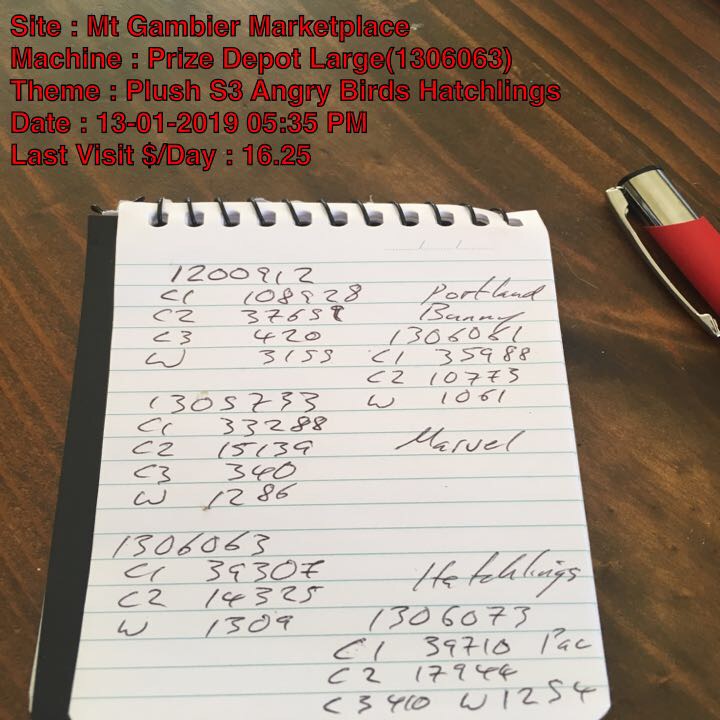 Site : Mt Gambier Marketplace
Machine : Prize Depot Large(1306063)
Theme : Plush S3 Angry Birds Hatchlings
Date : 13-01-2019 05:35 PM
Last Visit $/Day : 16.25
1200912
C1 108928
C2 37651
C3 420
W 3153
Portland
Bunny
1306061
C1 35988
C2 10773
W 1061
1305733
C1 33288
C2 15139
C3 340
W 1286
Marvel
1306063
C1 39307
C2 14325
W 1309
Hatchlings
1306073
C1 39710 Pac
C2 17944
C3 410 W 1254